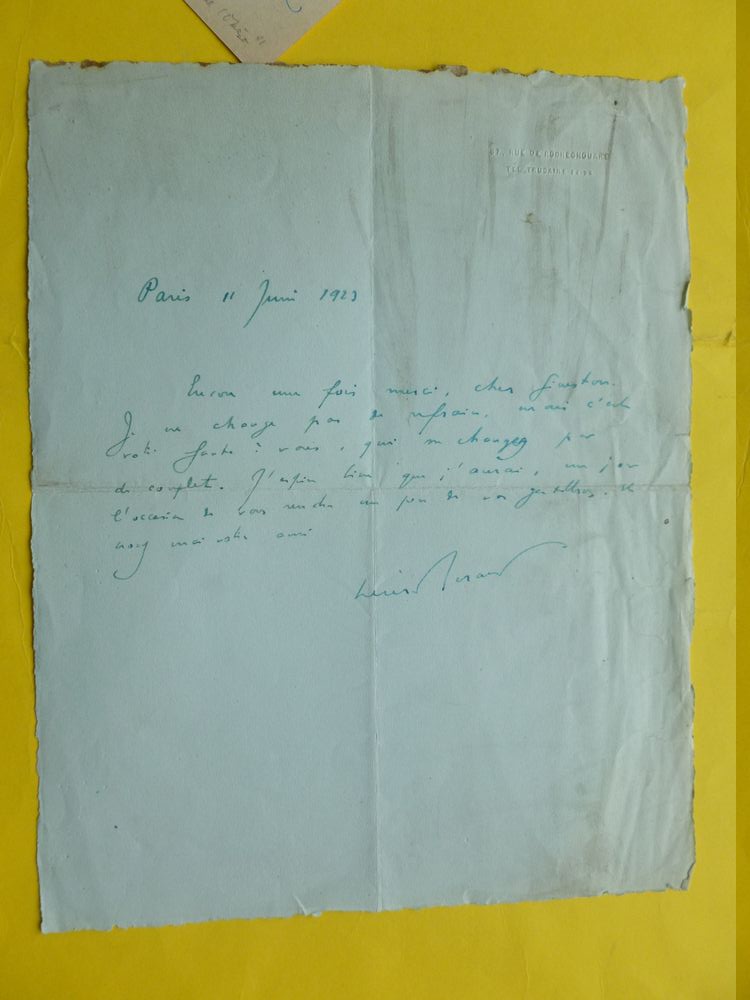 67, RUE DE ROCHECHOUART
TÉL. TRUDAINE
Paris 11 Juin 1923
Encore une fois merci, cher
Je ne change pas de refrain, mais c'est
votre faute à vous, qui ne changez pas
de couplet. J'espère bien que j'aurai, un jour
l'occasion de vous rendre un peu de vos gentillesses.
moi votre ami